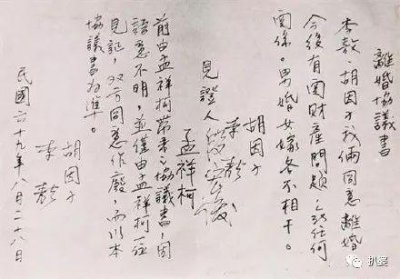 離婚協議書
李敖、胡因子我倆同意離婚
今後有関財產問題已無任何
関係。男婚女嫁各不相干。
胡因子
李敖
見證人
孟祥柯
前由孟祥柯帶来之協議書,因
語意不明,並僅由孟祥柯一在
見証,双方同意作廢,而以本
協議書為準。
胡因子
李敖
民國六十九年八月二十八日
扒蜜